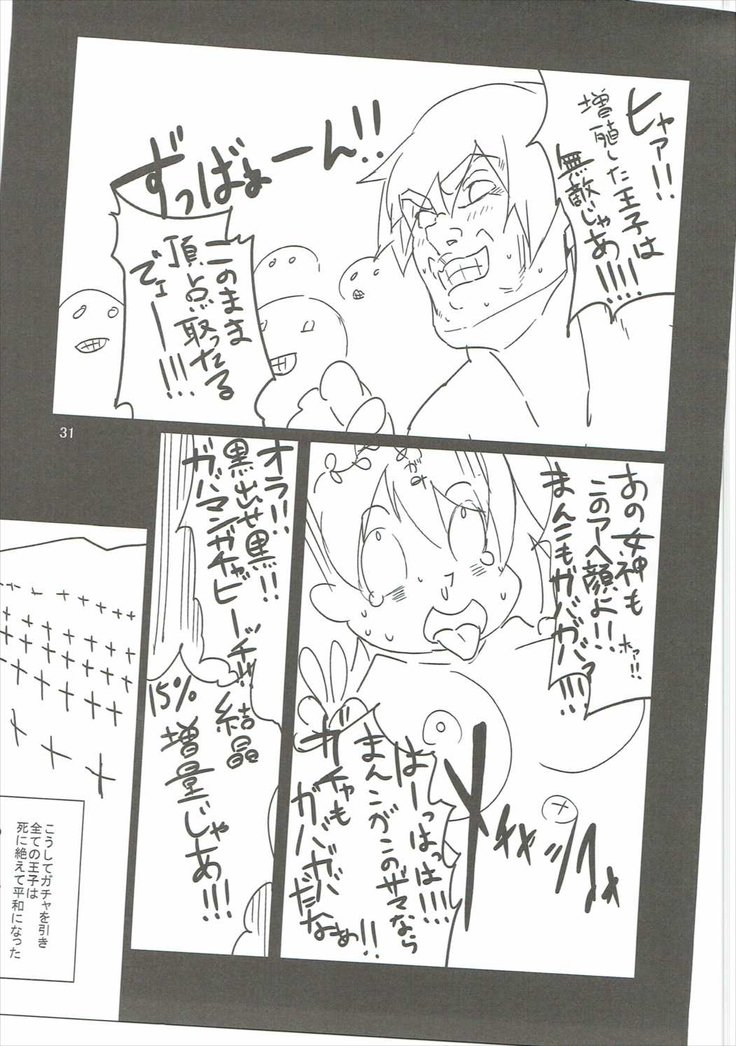 ヒャア!!
増殖した王子は
無敵じゃあ!!!!
ずっばぁーん!!
このまま
頂点取ったる
でェー!!!
31
あの女神も
このアヘ顔よ!!
ホァ!!
まんこもガバガバァ!!!!
めがみ
はーっはっは!!!!
まんこがこのザマなら
ガチャも
ガバガバ
だなぁ!!
オラ!!
黒出せ黒!!
ガバマンガチャビーッチ!!
結晶
15%
増量じゃあ!!!
こうしてガチャを引き
全ての王子は
死に絶えて平和になった